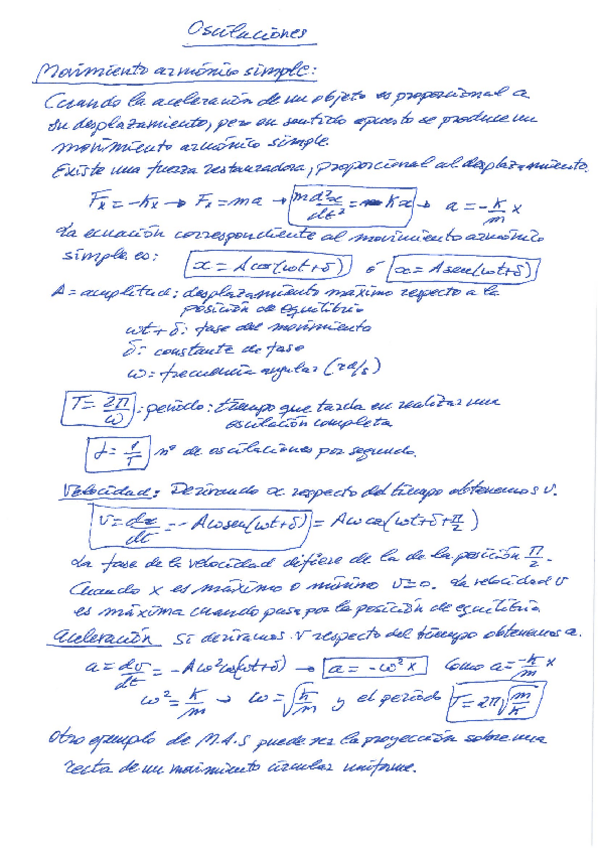 Oscilaciones
Movimiento armónico simple:
Cuando la aceleración de un objeto es proporcional a
su desplazamiento, pero en sentido opuesto se produce un
movimiento armónico simple.
Existe una fuerza restauradora, proporcional al desplazamiento.
Fx = -Kx → Fx = ma → m d²x/dt² = -Kx → a = -K/m x
La ecuación correspondiente al movimiento armónico
simple es: x = A cos(ωt+δ) ó x = A sen(ωt+δ)
A = amplitud: desplazamiento máximo respecto a la
posición de equilibrio
ωt + δ: fase del movimiento
δ: constante de fase
ω = frecuencia angular (rd/s)
T = 2π/ω : periodo: tiempo que tarda en realizar una
oscilación completa
f = 1/T nº de oscilaciones por segundo.
Velocidad: Derivando x respecto del tiempo obtenemos v.
v = dx/dt = -Aω sen(ωt+δ) = Aω cos(ωt+δ+π/2)
La fase de la velocidad difiere de la de la posición π/2.
Cuando x es máximo o mínimo v=0. La velocidad v
es máxima cuando pasa por la posición de equilibrio
Aceleración Si derivamos v respecto del tiempo obtenemos a.
a = dv/dt = -Aω² cos(ωt+δ) → a = -ω² x Como a = -K/m x
ω² = K/m → ω = √K/m y el periodo T = 2π √m/K
Otro ejemplo de M.A.S puede ser la proyección sobre una
recta de un movimiento circular uniforme.